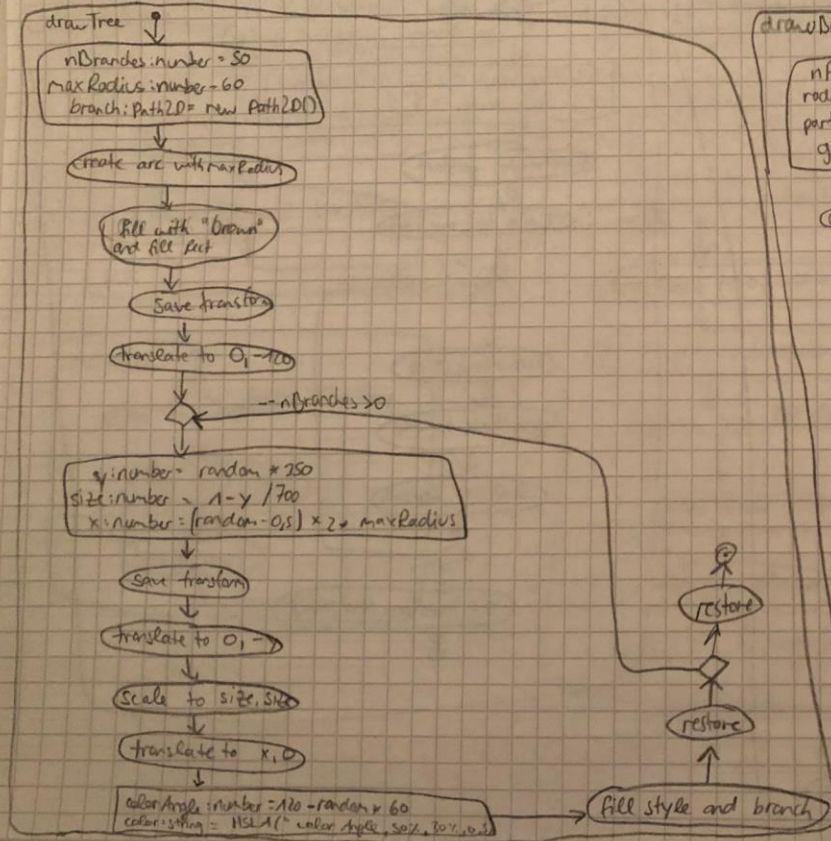 drawTree
nBranches:number = 50
maxRadius:number = 60
branch:Path2D = new Path2D()
create arc with maxRadius
fill with "brown"
and fill Rect
save transform
translate to 0, -120
--nBranches > 0
y:number = random * 350
size:number = 1-y / 700
x:number = (random-0,5) * 2 * maxRadius
save transform
translate to 0, -y
scale to size, size
translate to x, 0
colorAngle:number = 120 - random * 60
color:string = HSLA(" colorAngle, 50%, 30%, 0.5
fill style and branch
restore
restore
drawB
nP
rad
par
g